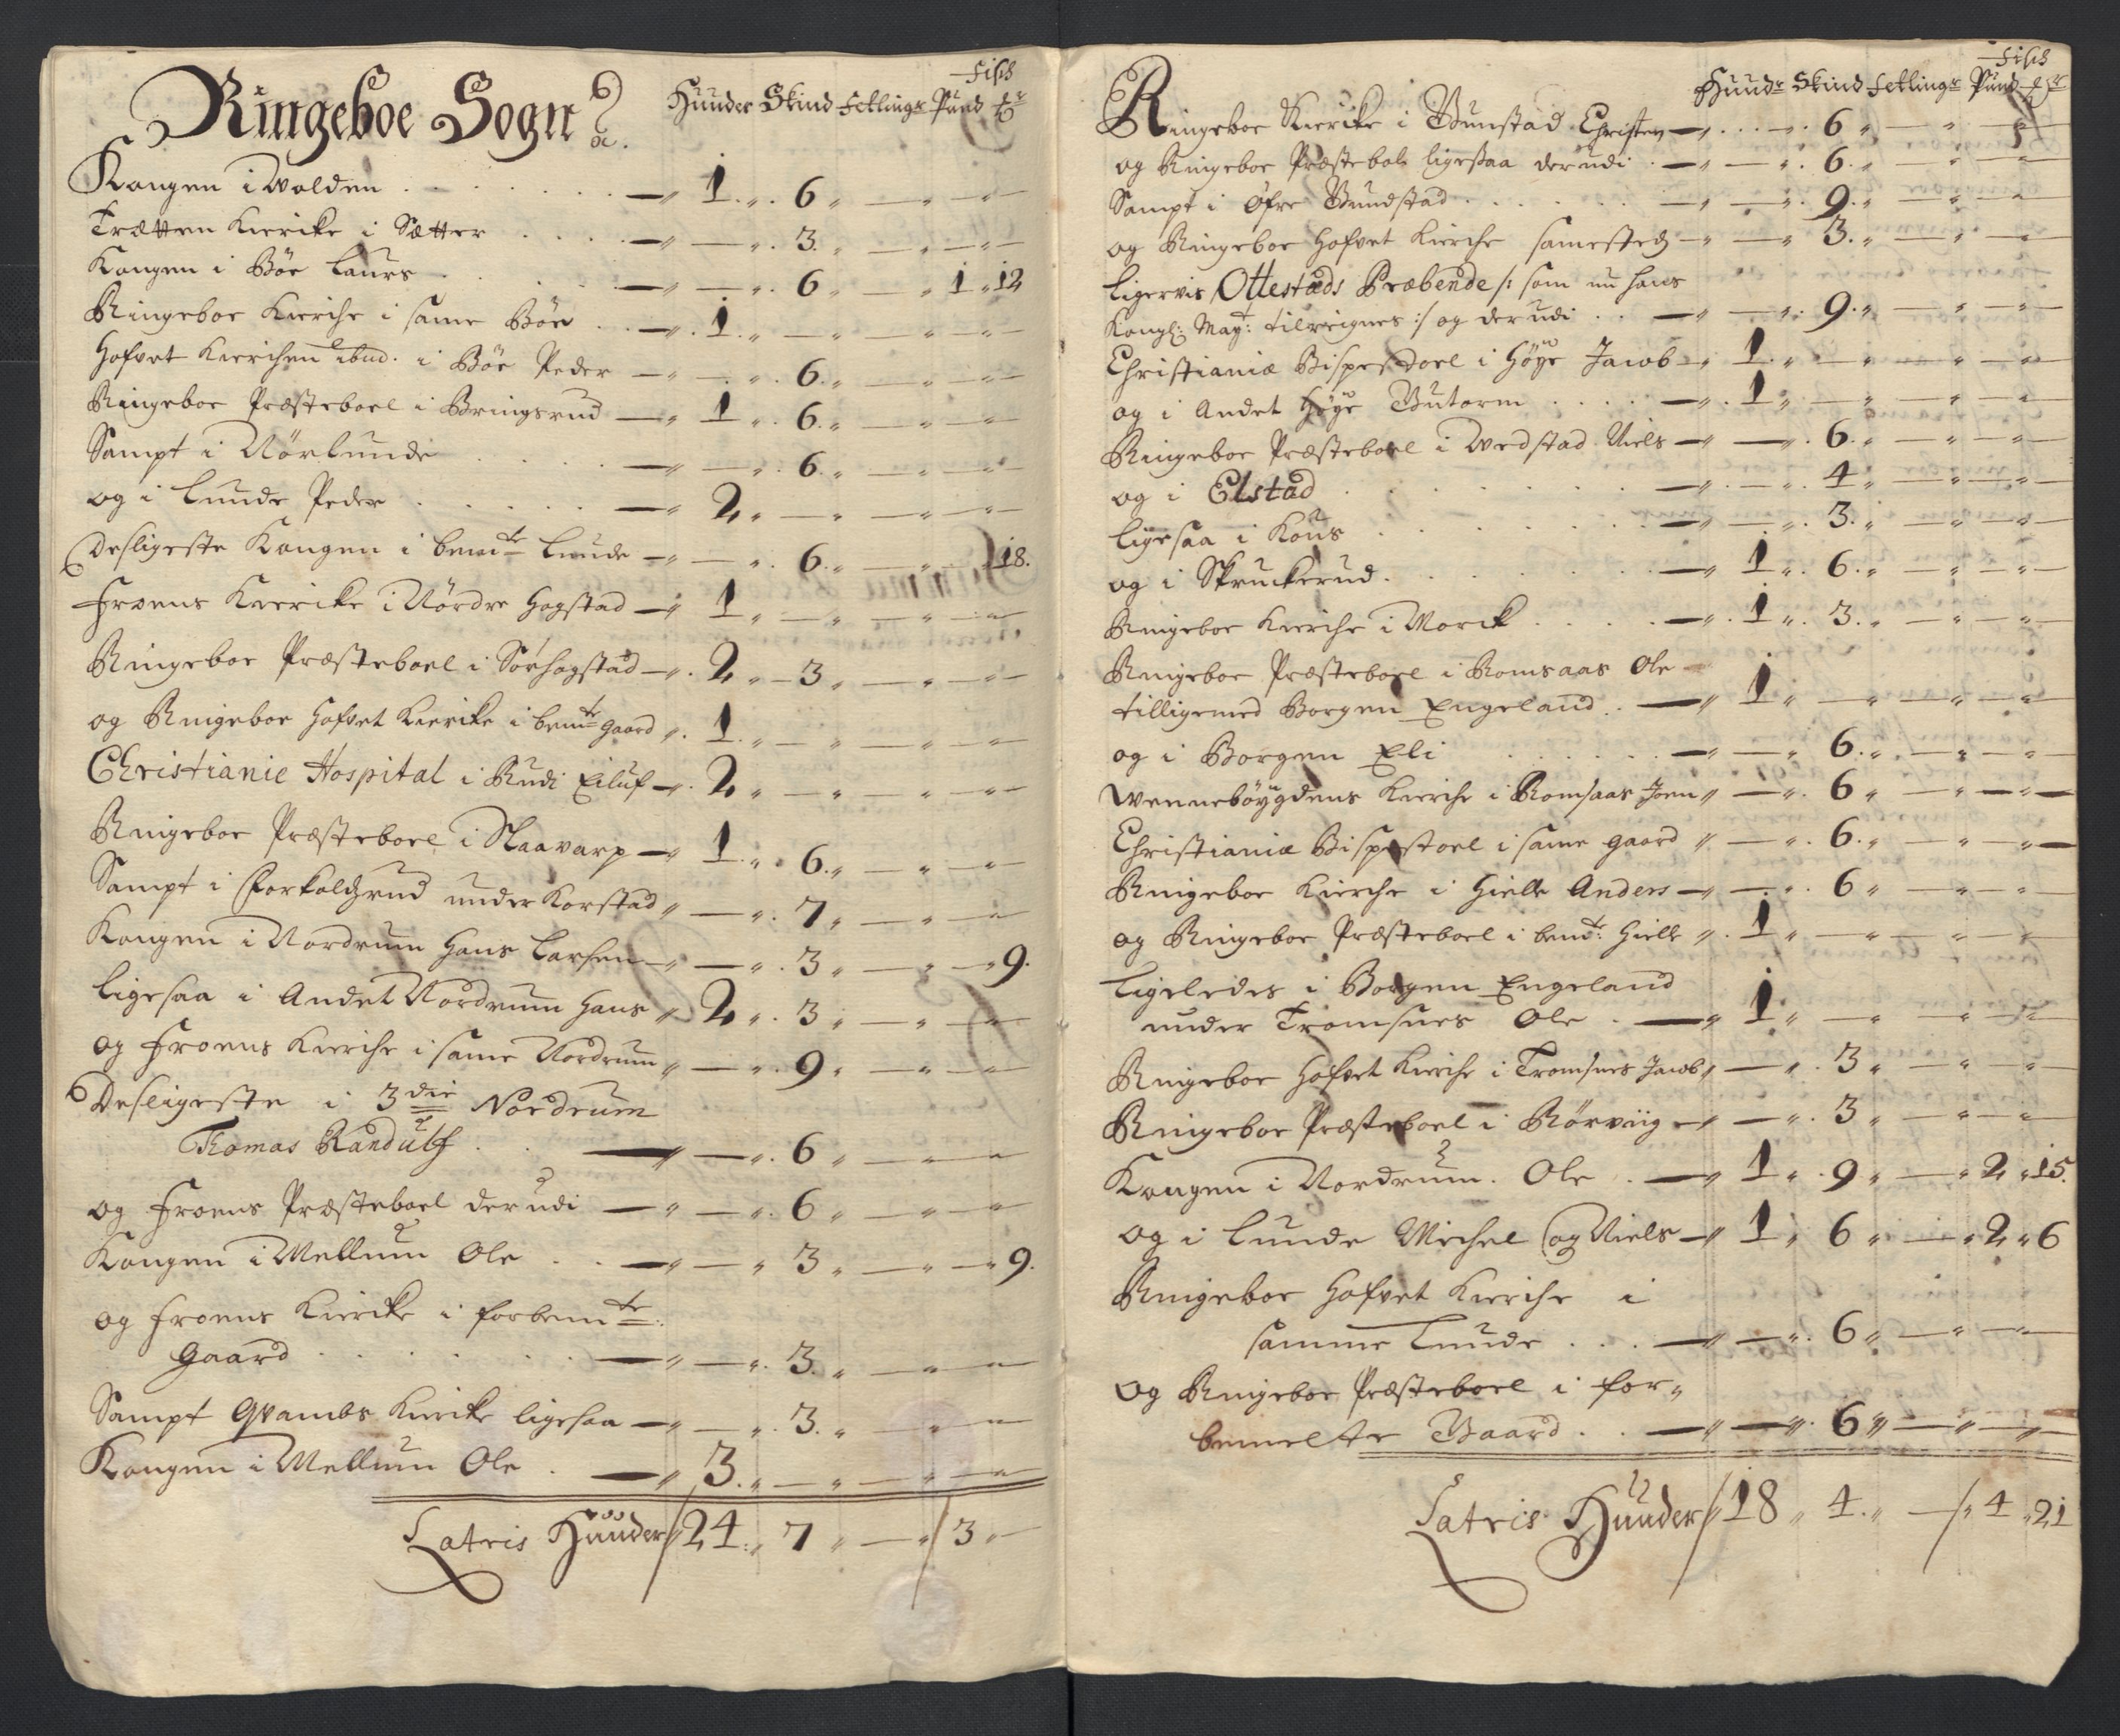 Ringeboe Sogn
Huuder Skind Fetlingr Fisk Pund
Kongen i Wolden 1 6
Trætten Kiercke i Sætter 3
Kongen i Böe Laurs 6 1 12
Ringeboe Kierche i same Böe 1
Hofvet Kierchen ibid. i Böe Peder 6
Ringeboe Præsteboel i Bringsrud 1 6
Sampt i Nörlunde 6
og i Lunde Peder 2
Desligeste Kongen i bemte Lunde 6 18.
Froens Kiercke i Nördre Hogstad 1
Ringeboe Præsteboel i Sörhogstad 2 3
og Ringeboe Hofvet Kiercke i bemte gaard 1
Christianie Hospital i Rudi Eiluf 2
Ringeboe Præsteboel i Staavarp 1 6
Sampt i under Korstad 7
Kongen i Nordrum Hans Larsen 3 9.
Ligesaa i Andet Nordrum Hans 2 3
og Froens Kierche i same Nordrum 9
Desligeste i 3die Nordrum
Thomas Randulf 6
og Froens Præsteboel derudi 6
Kongen i Mellum Ole 3 9.
og Froens Kiercke i forbemte
Gaard 3
Sampt Qvambs Kiercke ligesaa 3
Kongen i Mellum Ole 3
Latris Huuder 24 7 3
Huudr Skind Fetlingr Fisk Pund
Ringeboe Kiercke i Bunstad Christen 6
og Ringeboe Præstebole ligesaa derudi 6
Sampt i Öfre Bundstad 9
og Ringeboe Hofvet Kierche samested 3
Ligervis Ottestads Præbende /: som nu hans
Kongl: Mayt: tilreignes :/ og derudi 9
Christianiæ Bispestoel i Höye Jacob 1
og i Andet Höye Gutorm 1
Ringeboe Præsteboel i Wedstad Niels 6
og i Elstad 4
Ligesaa i Kous 3
og i Skruckerud 1 6
Ringeboe Kierche i Morck 1 3
Ringeboe Præsteboel i Romsaas Ole
tilligemed Borgen Engeland 1
og i Borgen Eli 6
Wenneböygdens Kierche i Romsaas Joen 6
Christianiæ Bispestoel i same gaard 6
Ringeboe Kierche i Hielle Anders 6
og Ringeboe Præsteboel i bemt: Hielle 1
Ligeledes i Borgen Engeland
under Tromsnes Ole 1
Ringeboe Hofvet Kierche i Tromsnes Jacob 3
Ringeboe Præsteboel i Rörviig 3
Kongen i Nordrum Ole 1 9 2 15.
og i Lunde Michel og Niels 1 6 2 6
Ringeboe Hofvet Kierche i
samme Lunde 6
og Ringeboe Præsteboel i for-
bemelte Gaard 6
Latris Huuder 18 4 4 21